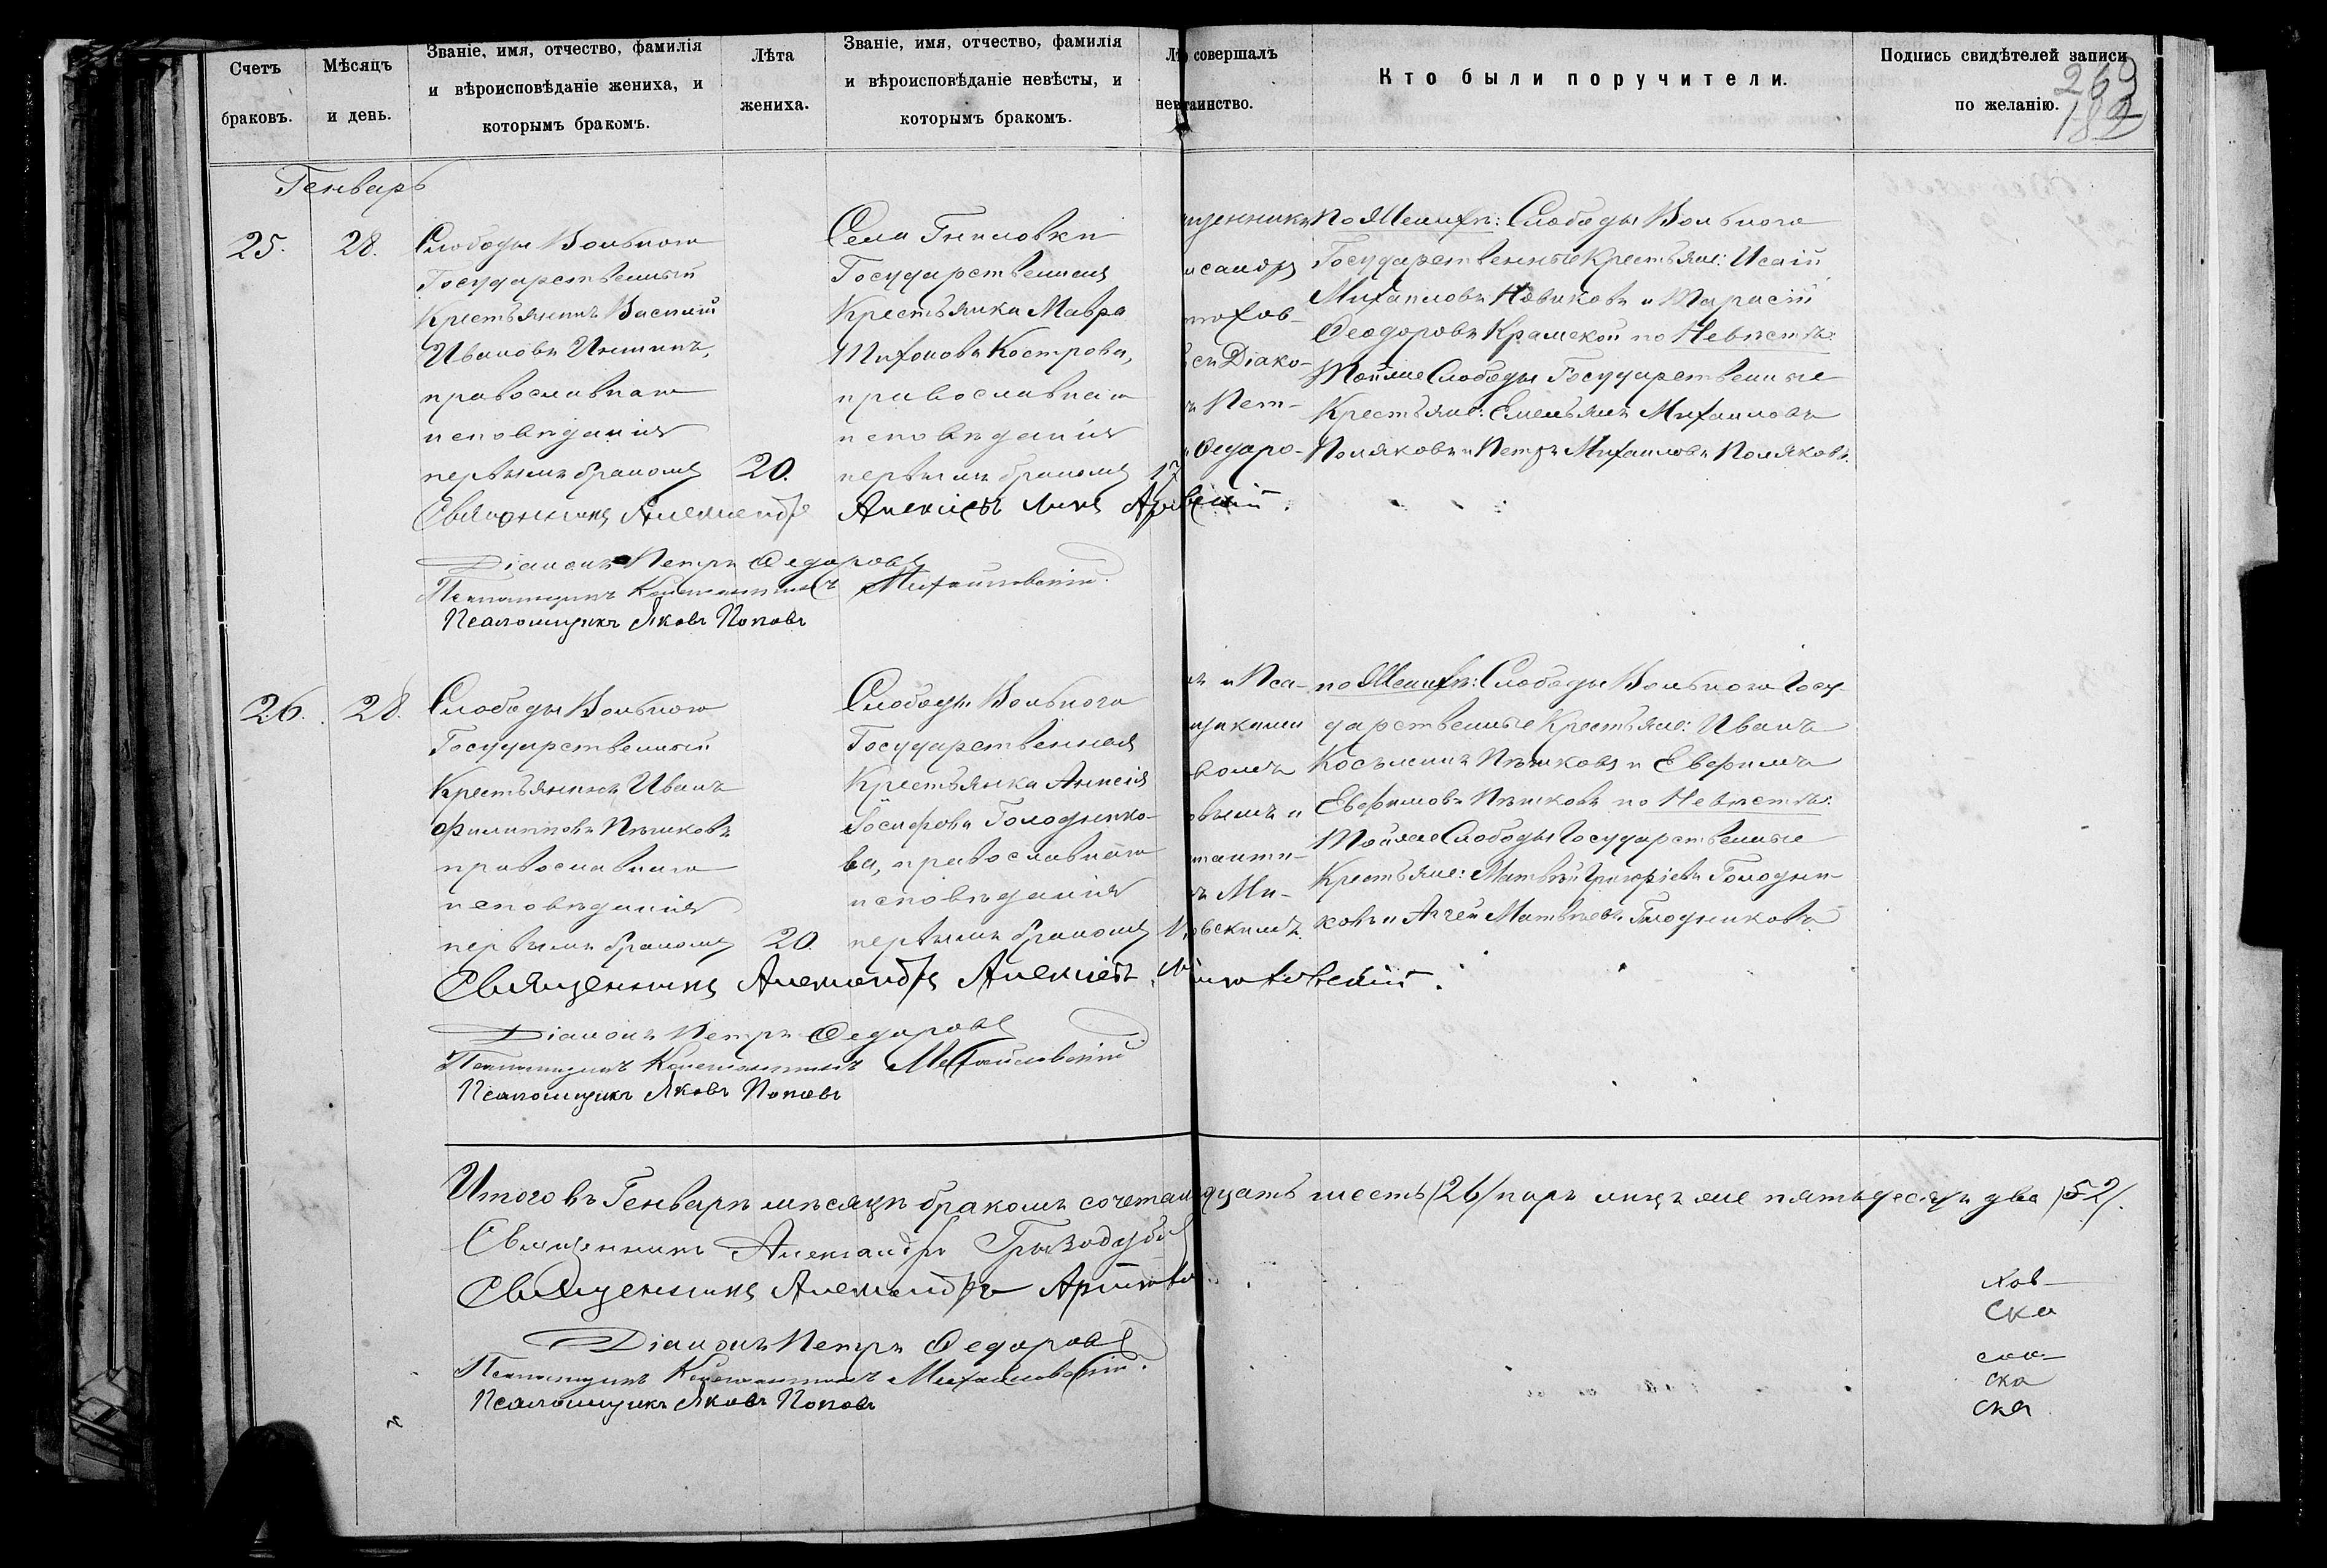 Счетъ
браковъ.
Мѣсяцъ
и день.
Званіе, имя, отчество, фамилія
и вѣроисповѣданіе жениха, и
которымъ бракомъ.
Лѣта
жениха.
Званіе, имя, отчество, фамилія
и вѣроисповѣданіе невѣсты, и
которымъ бракомъ.
Лѣ
нев
совершалъ
таинство.
Кто были поручители.
Подпись свидѣтелей записи
по желанію.
269
182
Генварь
25.
28.
Слободы Вольного
Государственный
Крестьянинъ Василій
Ивановъ
православнаго
исповѣданія
первымъ бракомъ
20.
Села Гниловки
Государственная
Крестьянка Мавра
Тихонова Кострова,
православнаго
исповѣданія
первымъ бракомъ
17
щенникъ
ксандръ
тохов-
Діако-
Пет-
Ѳедоро-
По Женихѣ: Слободы Вольного
Государственные Крестьяне: Исаій
Михаиловъ Новиковъ и Тарасій
Ѳеодоровъ Крамской по Невѣстѣ:
Тойже Слободы Государственные
Крестьяне: Емельянъ Михаиловъ
Поляковъ и Петръ Михаиловъ Поляковъ.
Священникъ Александръ Алексіевъ
Діаконъ Петръ Ѳедоровъ
Псаломщикъ Константинъ Михайловскій.
Псаломщикъ Яковъ Поповъ
26.
28.
Слободы Вольного
Государственный
Крестьянинъ Иванъ
Филипповъ Пѣшковъ
православнаго
исповѣданія
первымъ бракомъ
20.
Слободы Вольного
Государственная
Крестьянка Анисія
Іосифова Голоднико-
ва, православнаго
исповѣданія
первымъ бракомъ
и Пса-
щиками
вомъ
овымъ и
танти-
Ми-
овскимъ.
по Женихѣ: Слободы Вольного Госу-
дарственные Крестьяне: Иванъ
Косьминъ Пѣшковъ и Евфимъ
Евфимовъ Пѣшковъ по Невѣстѣ:
Тойже Слободы Государственные
Крестьяне: Матвѣй Григорьевъ Голодни-
ковъ и Аггей Матвѣевъ Голодниковъ.
Священникъ Александръ Алексіевъ
Діаконъ Петръ Ѳедоровъ
Псаломщикъ Константинъ Михайловскій
Псаломщикъ Яковъ Поповъ
Итого въ Генварѣ мѣсяцѣ бракомъ сочетал дцать шесть /26/ паръ лицъ же пятьдесятъ два /52/.
Священникъ Александръ Грызодубъ
Священникъ Александръ
Діаконъ Петръ Ѳедоровъ
Псаломщикъ Константинъ Михайловскій.
Псаломщикъ Яковъ Поповъ
хов-
ска
ска
ска